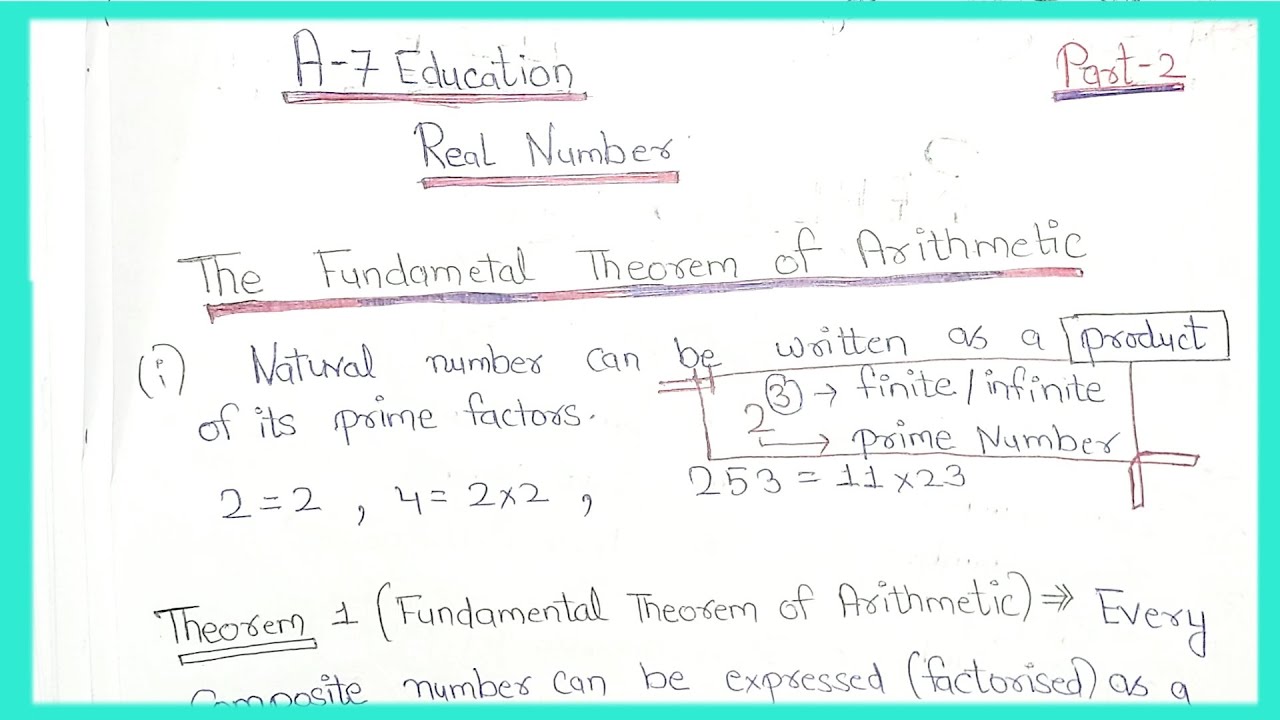 A-7 Education
Part-2
Real Number
The Fundametal Theorem of Arithmetic
(i) Natural number can be written as a product
of its prime factors.
2³ → finite/infinite
→ prime Number
2=2 , 4=2×2 ,
253 = 11×23
Theorem 1 (Fundamental Theorem of Arithmetic) ⇒ Every
Composite number can be expressed (factorised) as a